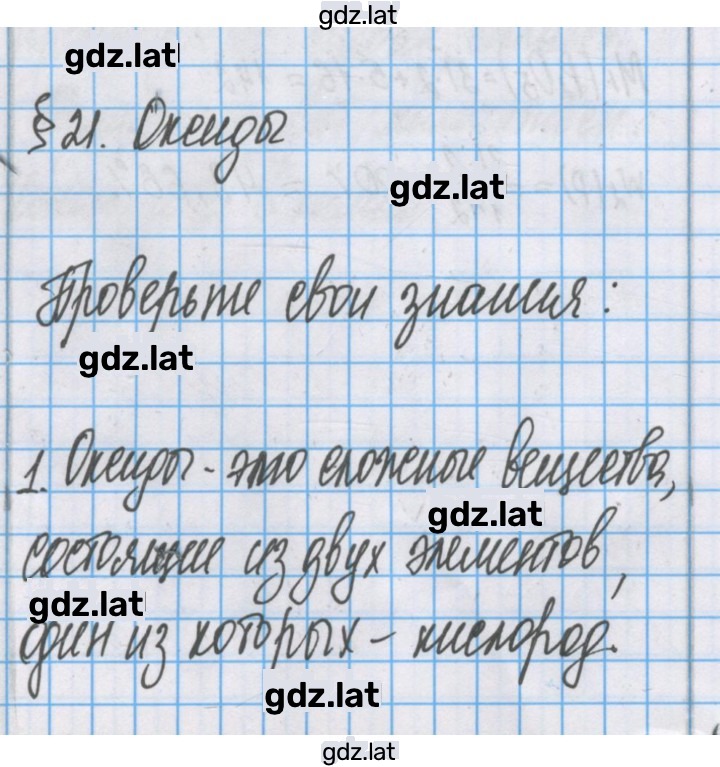 gdz.lat
gdz.lat
§ 21. Оксиды
gdz.lat
Проверьте свои знания:
gdz.lat
1. Оксиды - это сложные вещества,
gdz.lat
состоящие из двух элементов,
gdz.lat
один из которых - кислород.
gdz.lat
gdz.lat